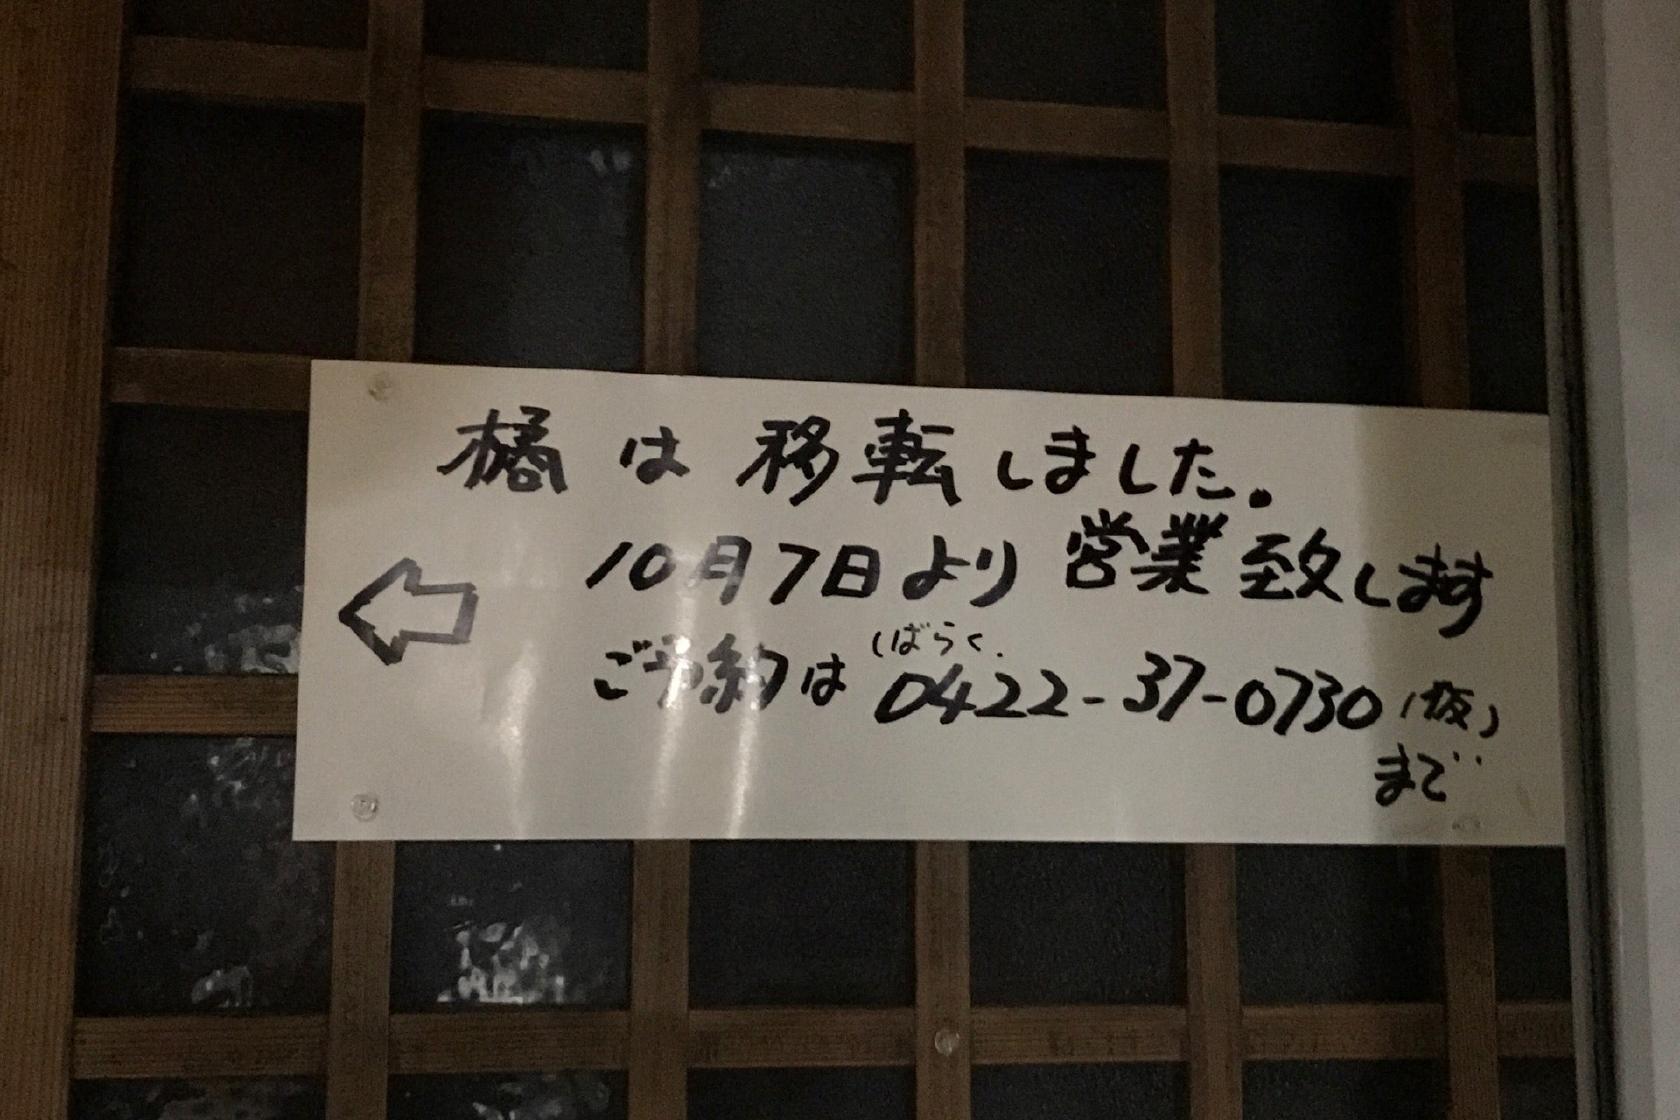 橘は移転しました。
10月7日より営業致します
しばらく.
ご予約は0422-37-0730(仮)
まで